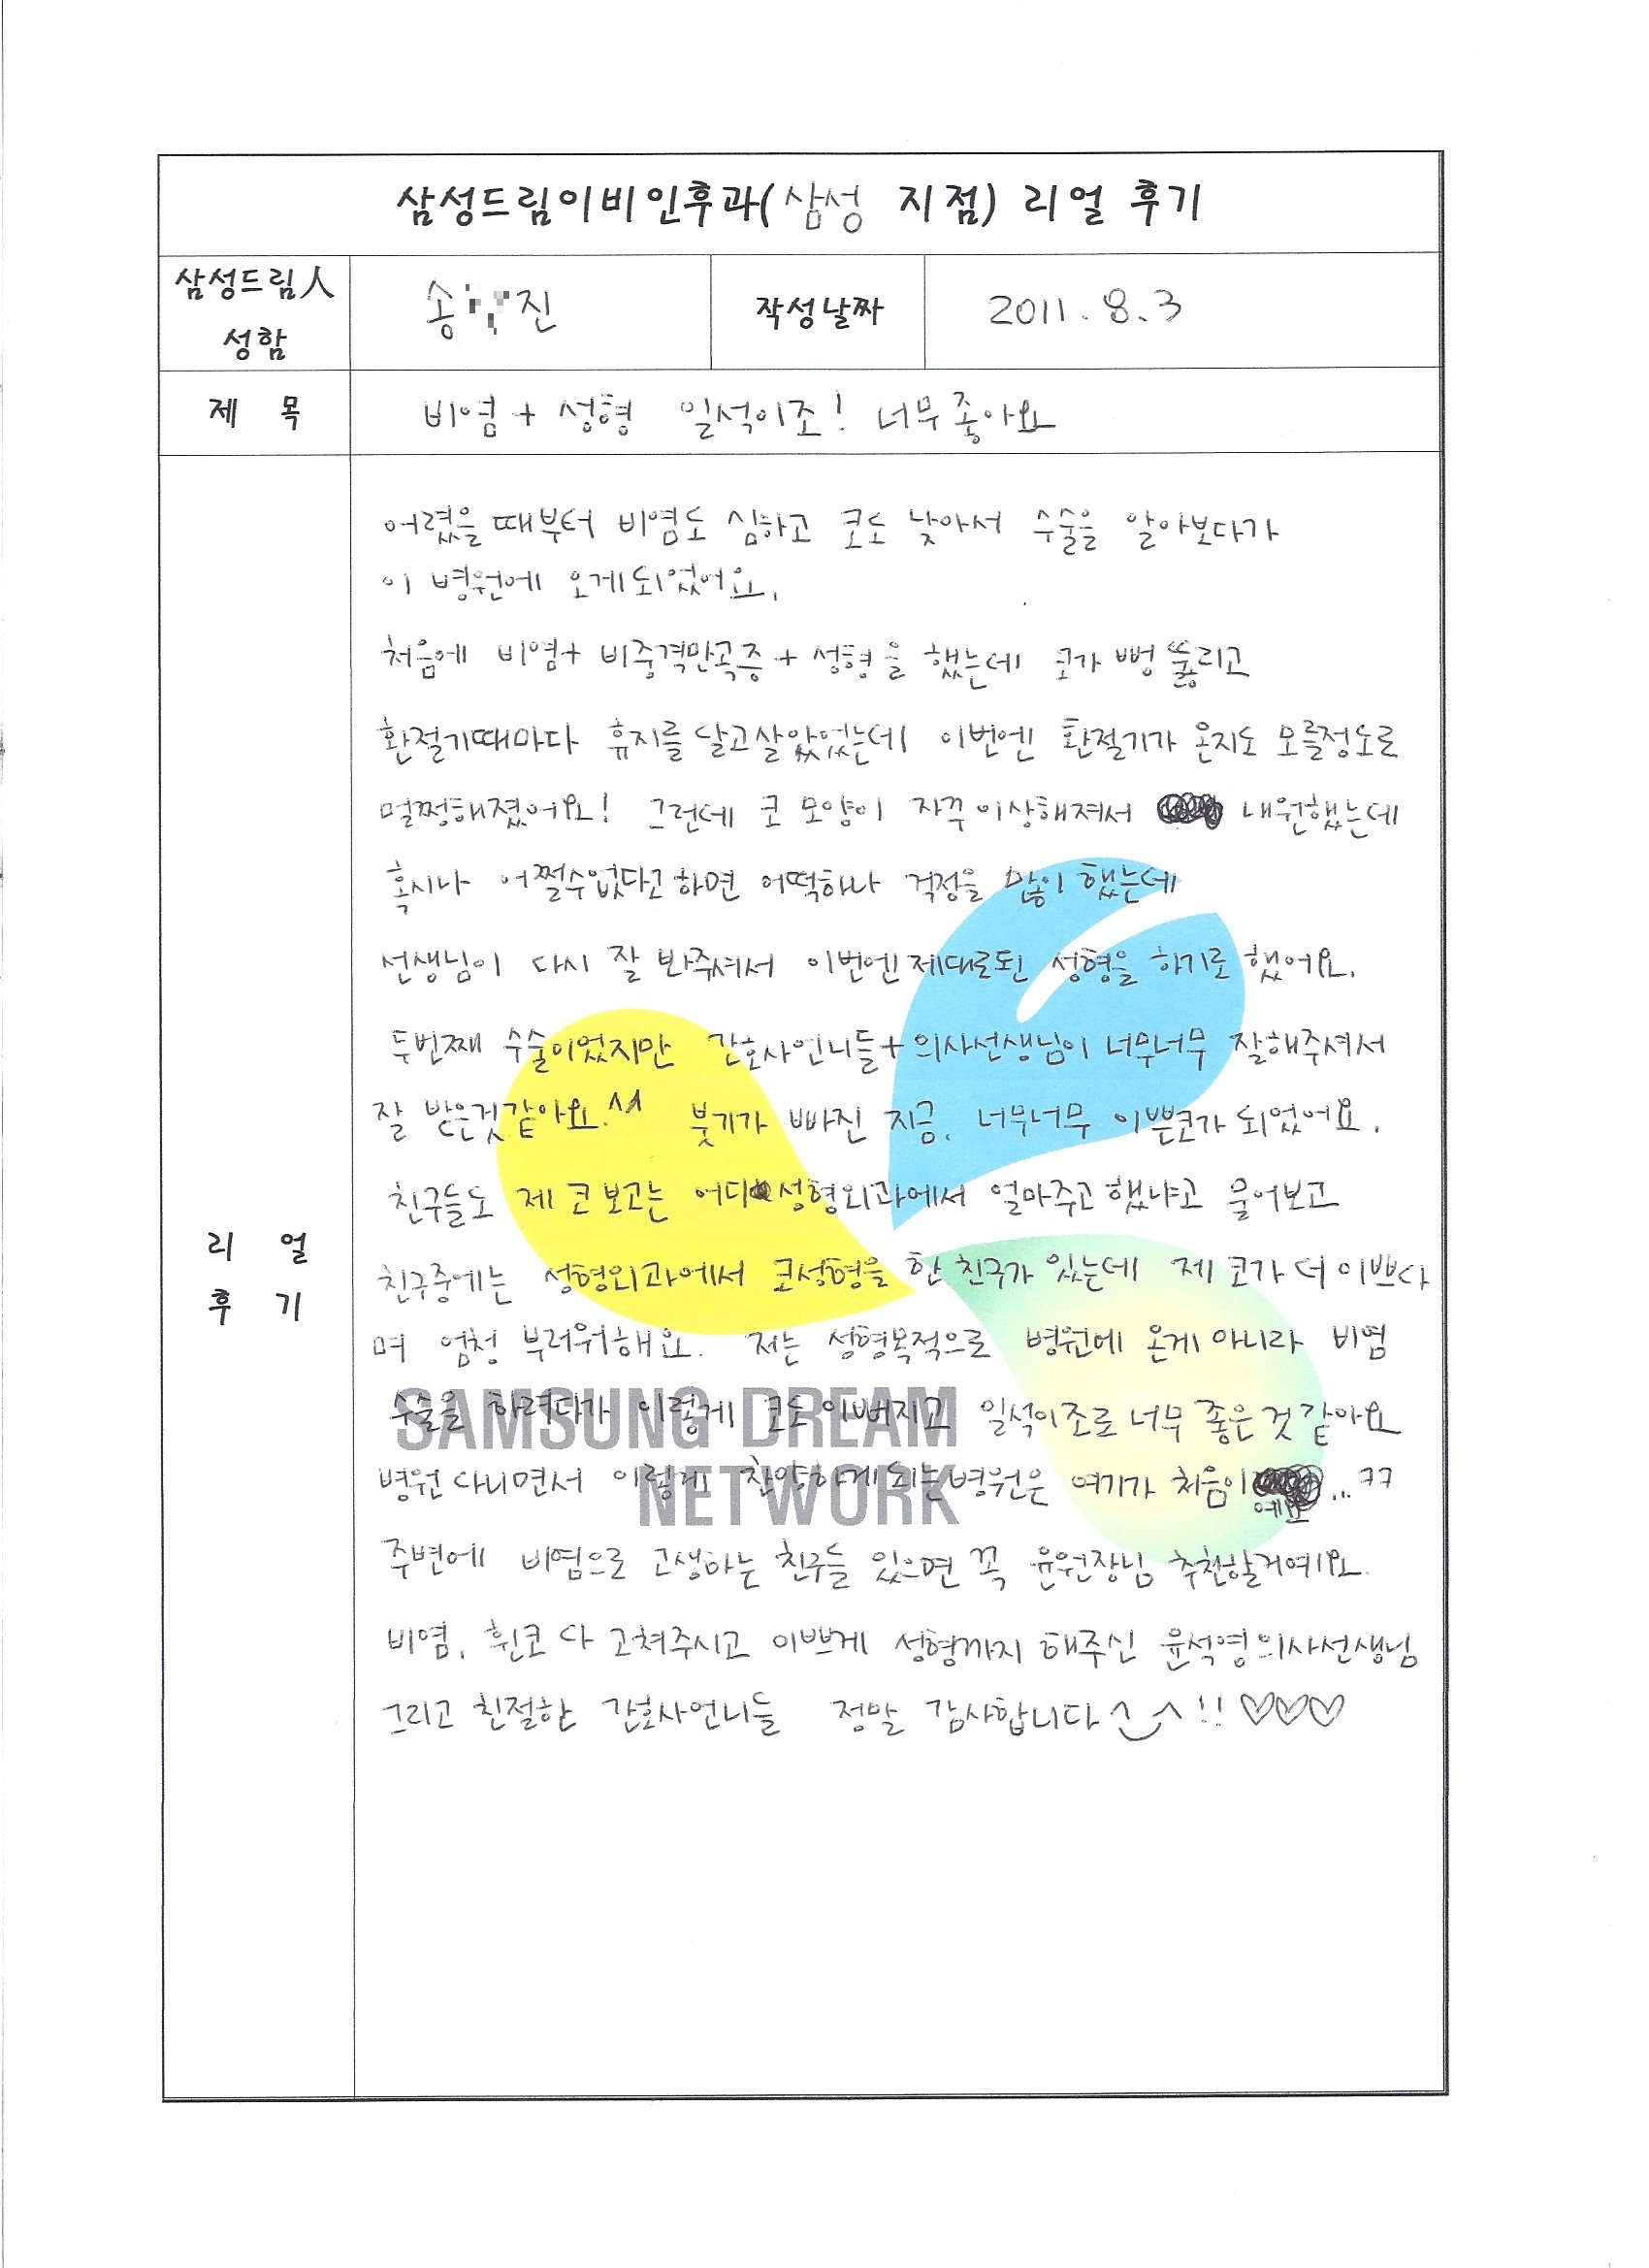 삼성드림이비인후과(삼성 지점) 리얼 후기
삼성드림人
성함
송 진
작성날짜
2011. 8. 3
제 목
비염 + 성형 일석이조! 너무 좋아요
어렸을 때부터 비염도 심하고 코도 낮아서 수술을 알아보다가
이 병원에 오게되었어요.
처음에 비염+ 비중격만곡증 + 성형을 했는데 코가 뻥 뚫리고
환절기때마다 휴지를 달고살았었는데 이번엔 환절기가 온지도 모를정도로
멀쩡해졌어요! 그런데 코 모양이 자꾸 이상해져서 내원했는데
혹시나 어쩔수없다고 하면 어떡하나 걱정을 많이 했는데
선생님이 다시 잘 봐주셔서 이번엔 제대로된 성형을 하기로 했어요.
두번째 수술이었지만 간호사언니들+의사선생님이 너무너무 잘해주셔서
잘 받은것같아요.^^ 붓기가 빠진 지금, 너무너무 이쁜코가 되었어요.
친구들도 제 코 보고는 어디 성형외과에서 얼마주고 했냐고 물어보고
친구중에는 성형외과에서 코성형을 한 친구가 있는데 제 코가 더 이쁘다
며 엄청 부러워해요. 저는 성형목적으로 병원에 온게 아니라 비염
수술을 하려다가 이렇게 코도 이뻐지고 일석이조로 너무 좋은 것 같아요
병원 다니면서 이렇게 찬양하게되는병원은 여기가 처음이예요...ㅋㅋ
주변에 비염으로 고생하는 친구들 있으면 꼭 윤원장님 추천할거예요.
비염, 휜코 다 고쳐주시고 이쁘게 성형까지 해주신 윤석영의사선생님
그리고 친절한 간호사언니들 정말 감사합니다^_^!! ♡♡♡
리 얼
후 기
SAMSUNG DREAM
NETWORK